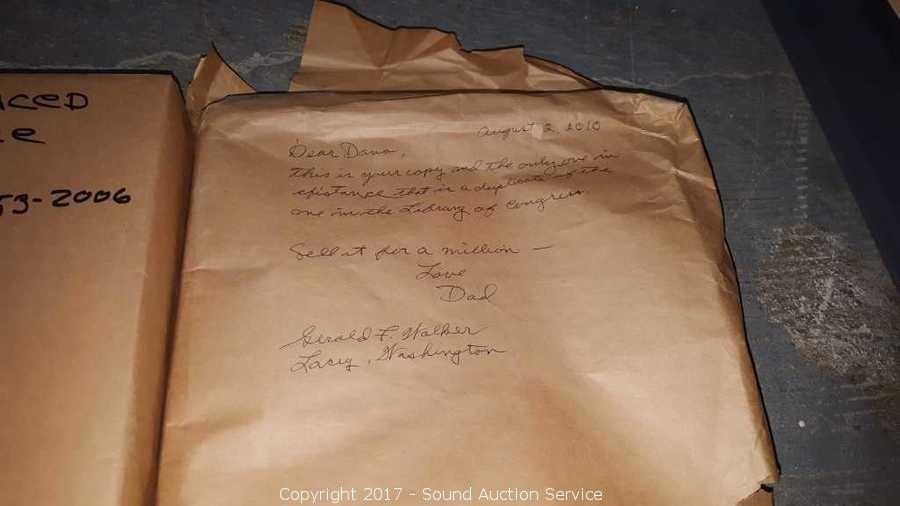 ACED
53-2006
August 2, 2010
Dear Dana,
this is your copy and the only one in
existance that is a duplicate of the
one in the Library of Congress.
Sell it for a million —
Love
Dad
Gerald F. Walker
Lacey, Washington
Copyright 2017 - Sound Auction Service